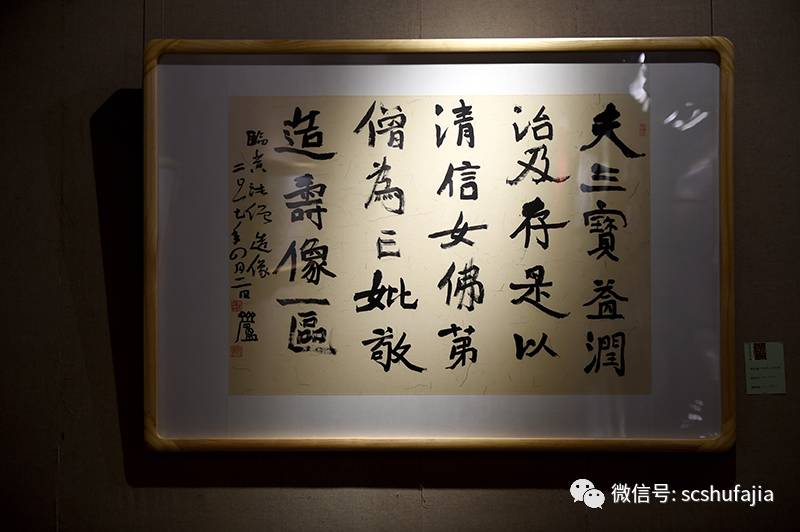 夫三寶益潤
治及存是以
清信女佛苐
僧為亡妣敬
造壽像一區
臨黄法僧造像
二〇一七年四月二日
微信号: scshufajia